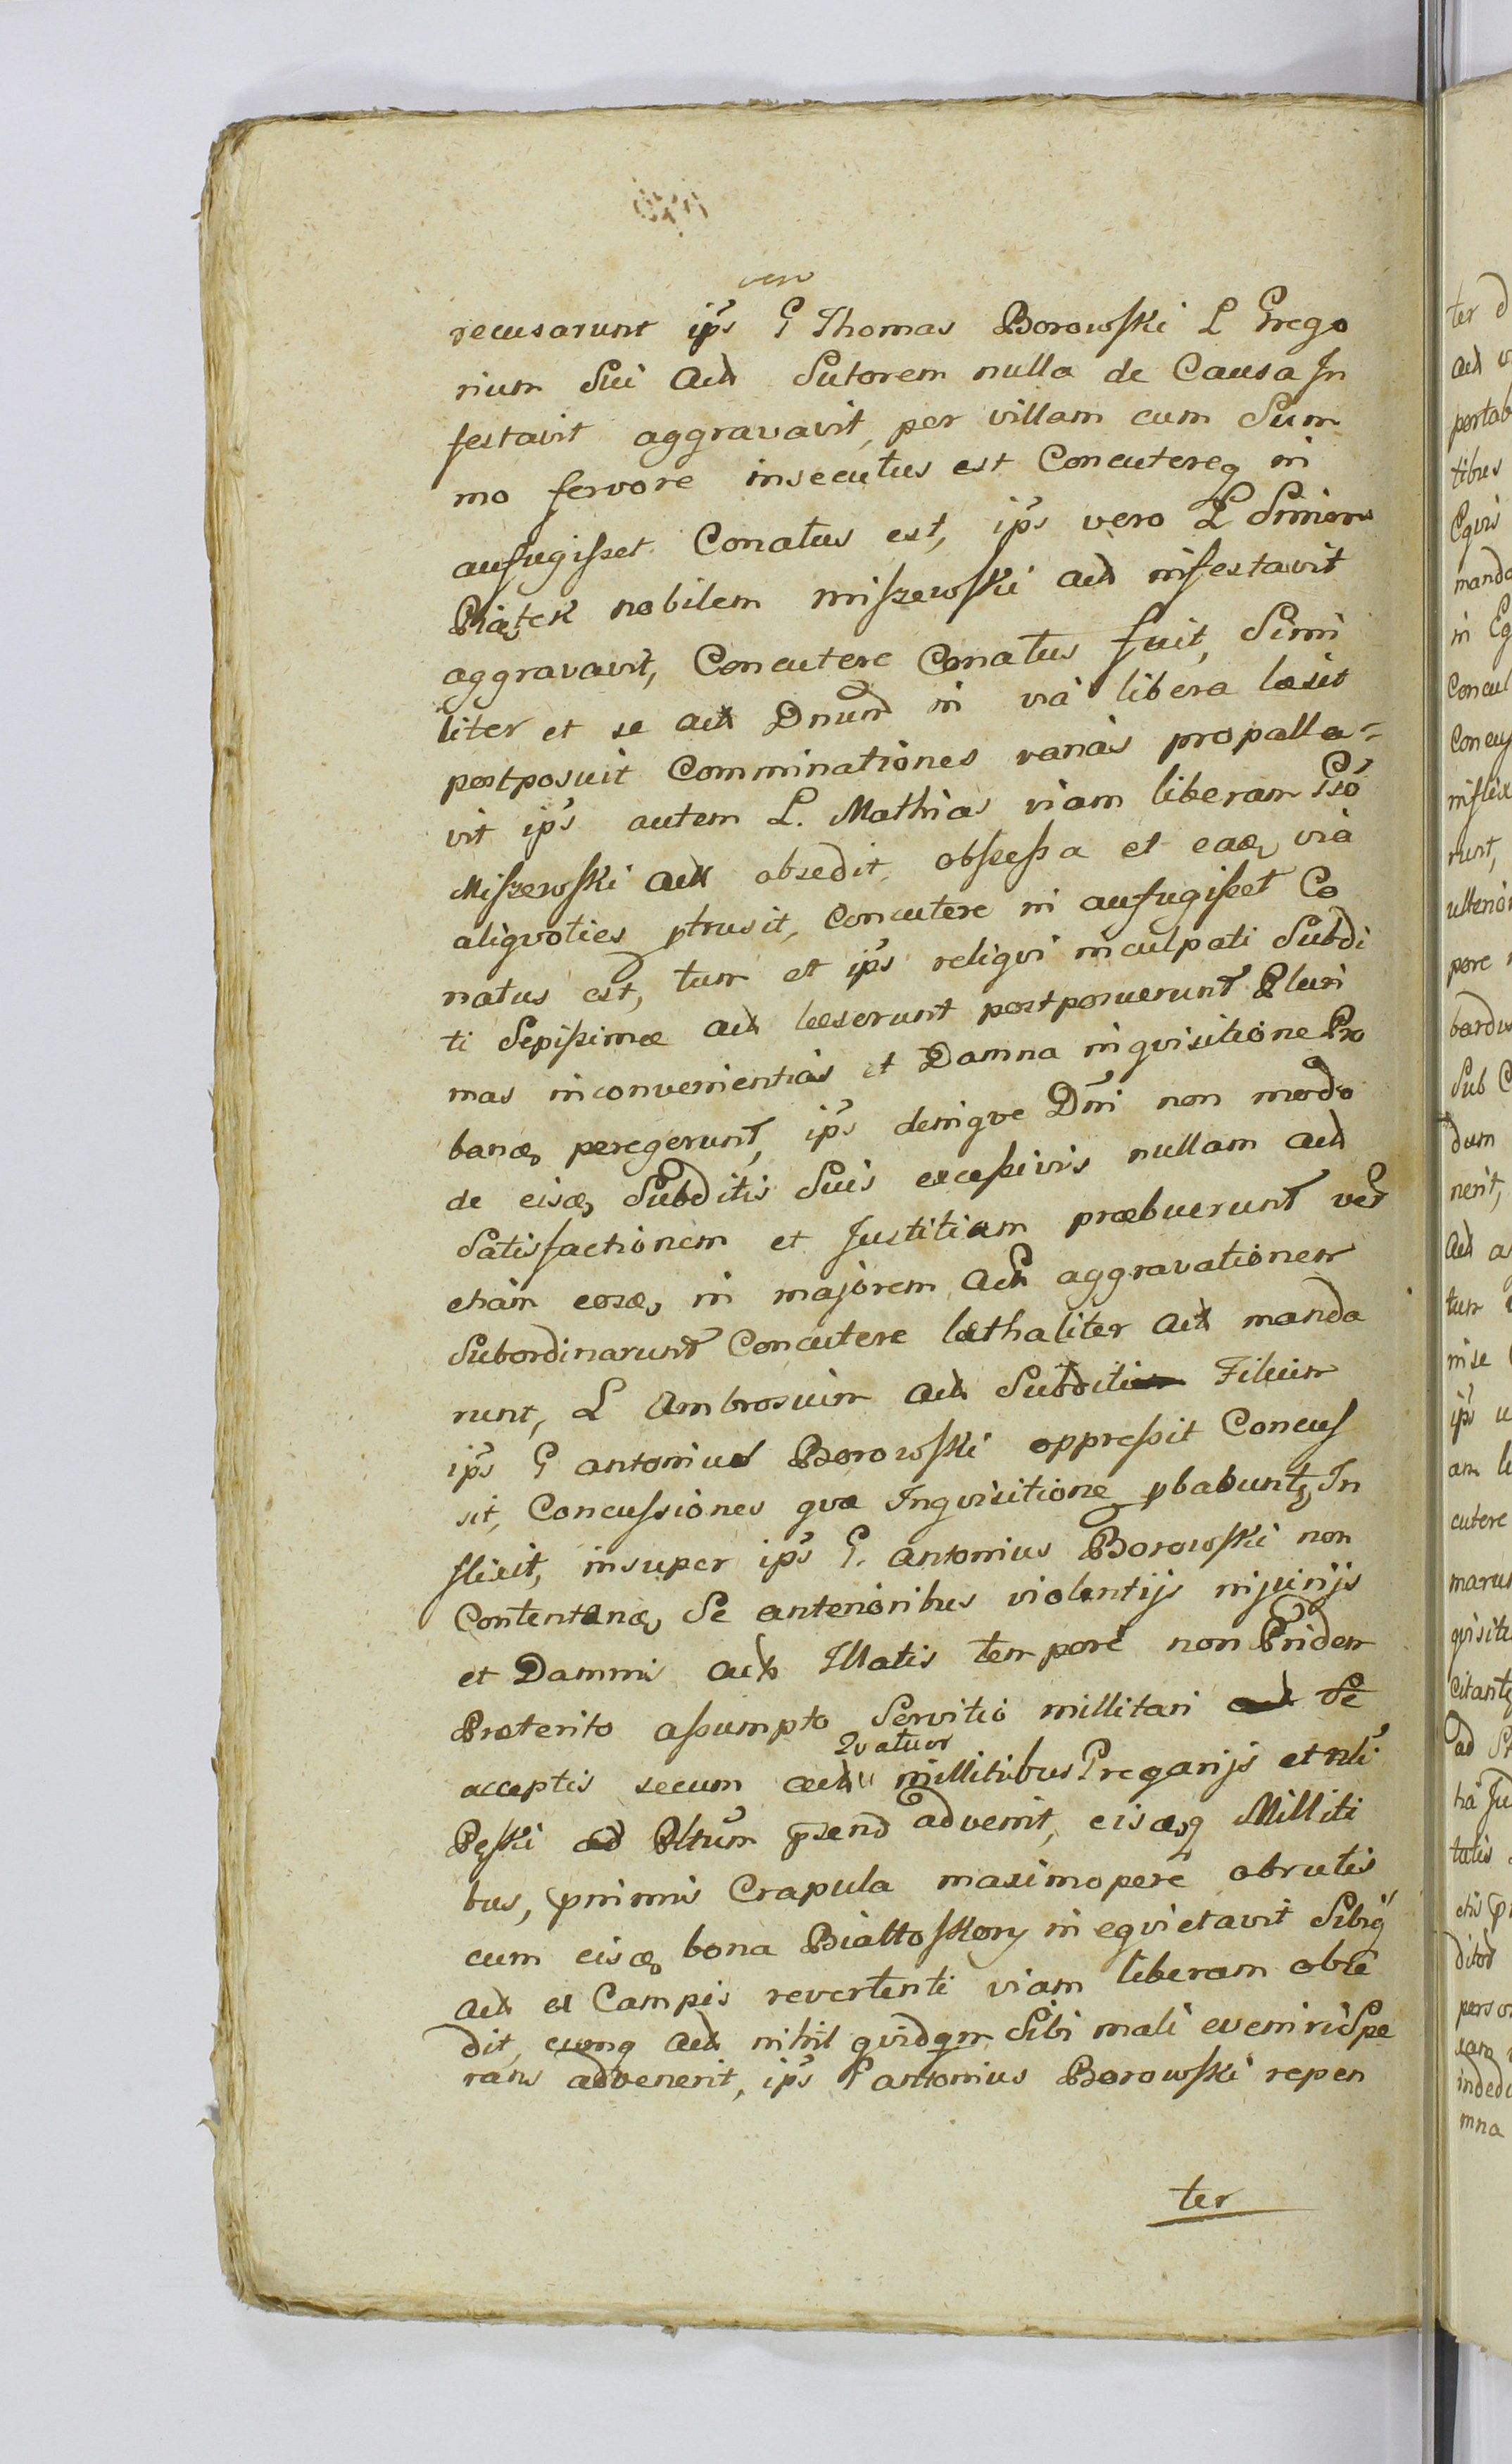 vero
recusarunt ips G Thomas Borowski L Grego
rium Sui Act Sutorem nulla de Causa In
festavit aggravavit, per villam cum Sum
mo fervore insecutus est Concutereq ni
aufugisset Conatus est, ips vero L Simon
Piątek nobilem Miszewski act infestavit
aggravavit, Concutere Conatus fuit, Simi
liter et se act Dnum in via libera læsit
postposuit Comminationes varias propalla-
vit ips autem L. Mathias viam liberam Gso
Miszewski act obsedit, obsessa et eaæ via
aliqvoties ptrusit, Concutere ni aufugisset Co
natus est, tum et ips reliqvi inculpati Subdi
ti Sepissime act læserunt postposuerunt Pluri
mas inconvenientias et Damna inqvisitione Pro
banæ peregerunt, ips deniqve Dni non modo
de eisæ Subditis Suis excessivis nullam act
Satisfactionem et Justitiam præbuerunt ver
etiam eosæ in majorem Act aggravationem
Subordinarunt Concutere læthaliter act manda
runt, L Ambrosium act Subditi Filium
ips G Antonius Borowski oppressit Concus
sit, Concussiones qvæ Inqvisitione pbabunt, In
flixit, insuper ips G. Antonius Borowski non
Contentanæ Se anterioribus violentijs injurijs
et Damnis act Illatis tempore non Pridem
Præterito assumpto Servitio millitari Se
Qvatuor
acceptis secum act millitibus Gregarijs et nli
Pęski ad Pltum psend advenit, eisæq Milliti
bus, primis Crapula maximopere obrutis
cum eisæ bona Białtoskory inqvietavit Sibiq
act ex Campis revertenti viam liberam obse
dit, cumq act nihil qvidqm Sibi mali eveniri Spe
rans advenerit, ips G Antonius Borowski repen
ter
ter d
act
portab
tibus
Eqvis
manda
in Eq
Concul
Concus
inflix
runt,
ulterior
pore
bardus
Sub C
dum
nerit,
act a
tum
in se
ips
am li
cutere
marun
qvisiti
Citant
ad
ha Ju
tatis
ditor
perso
indedu
mna